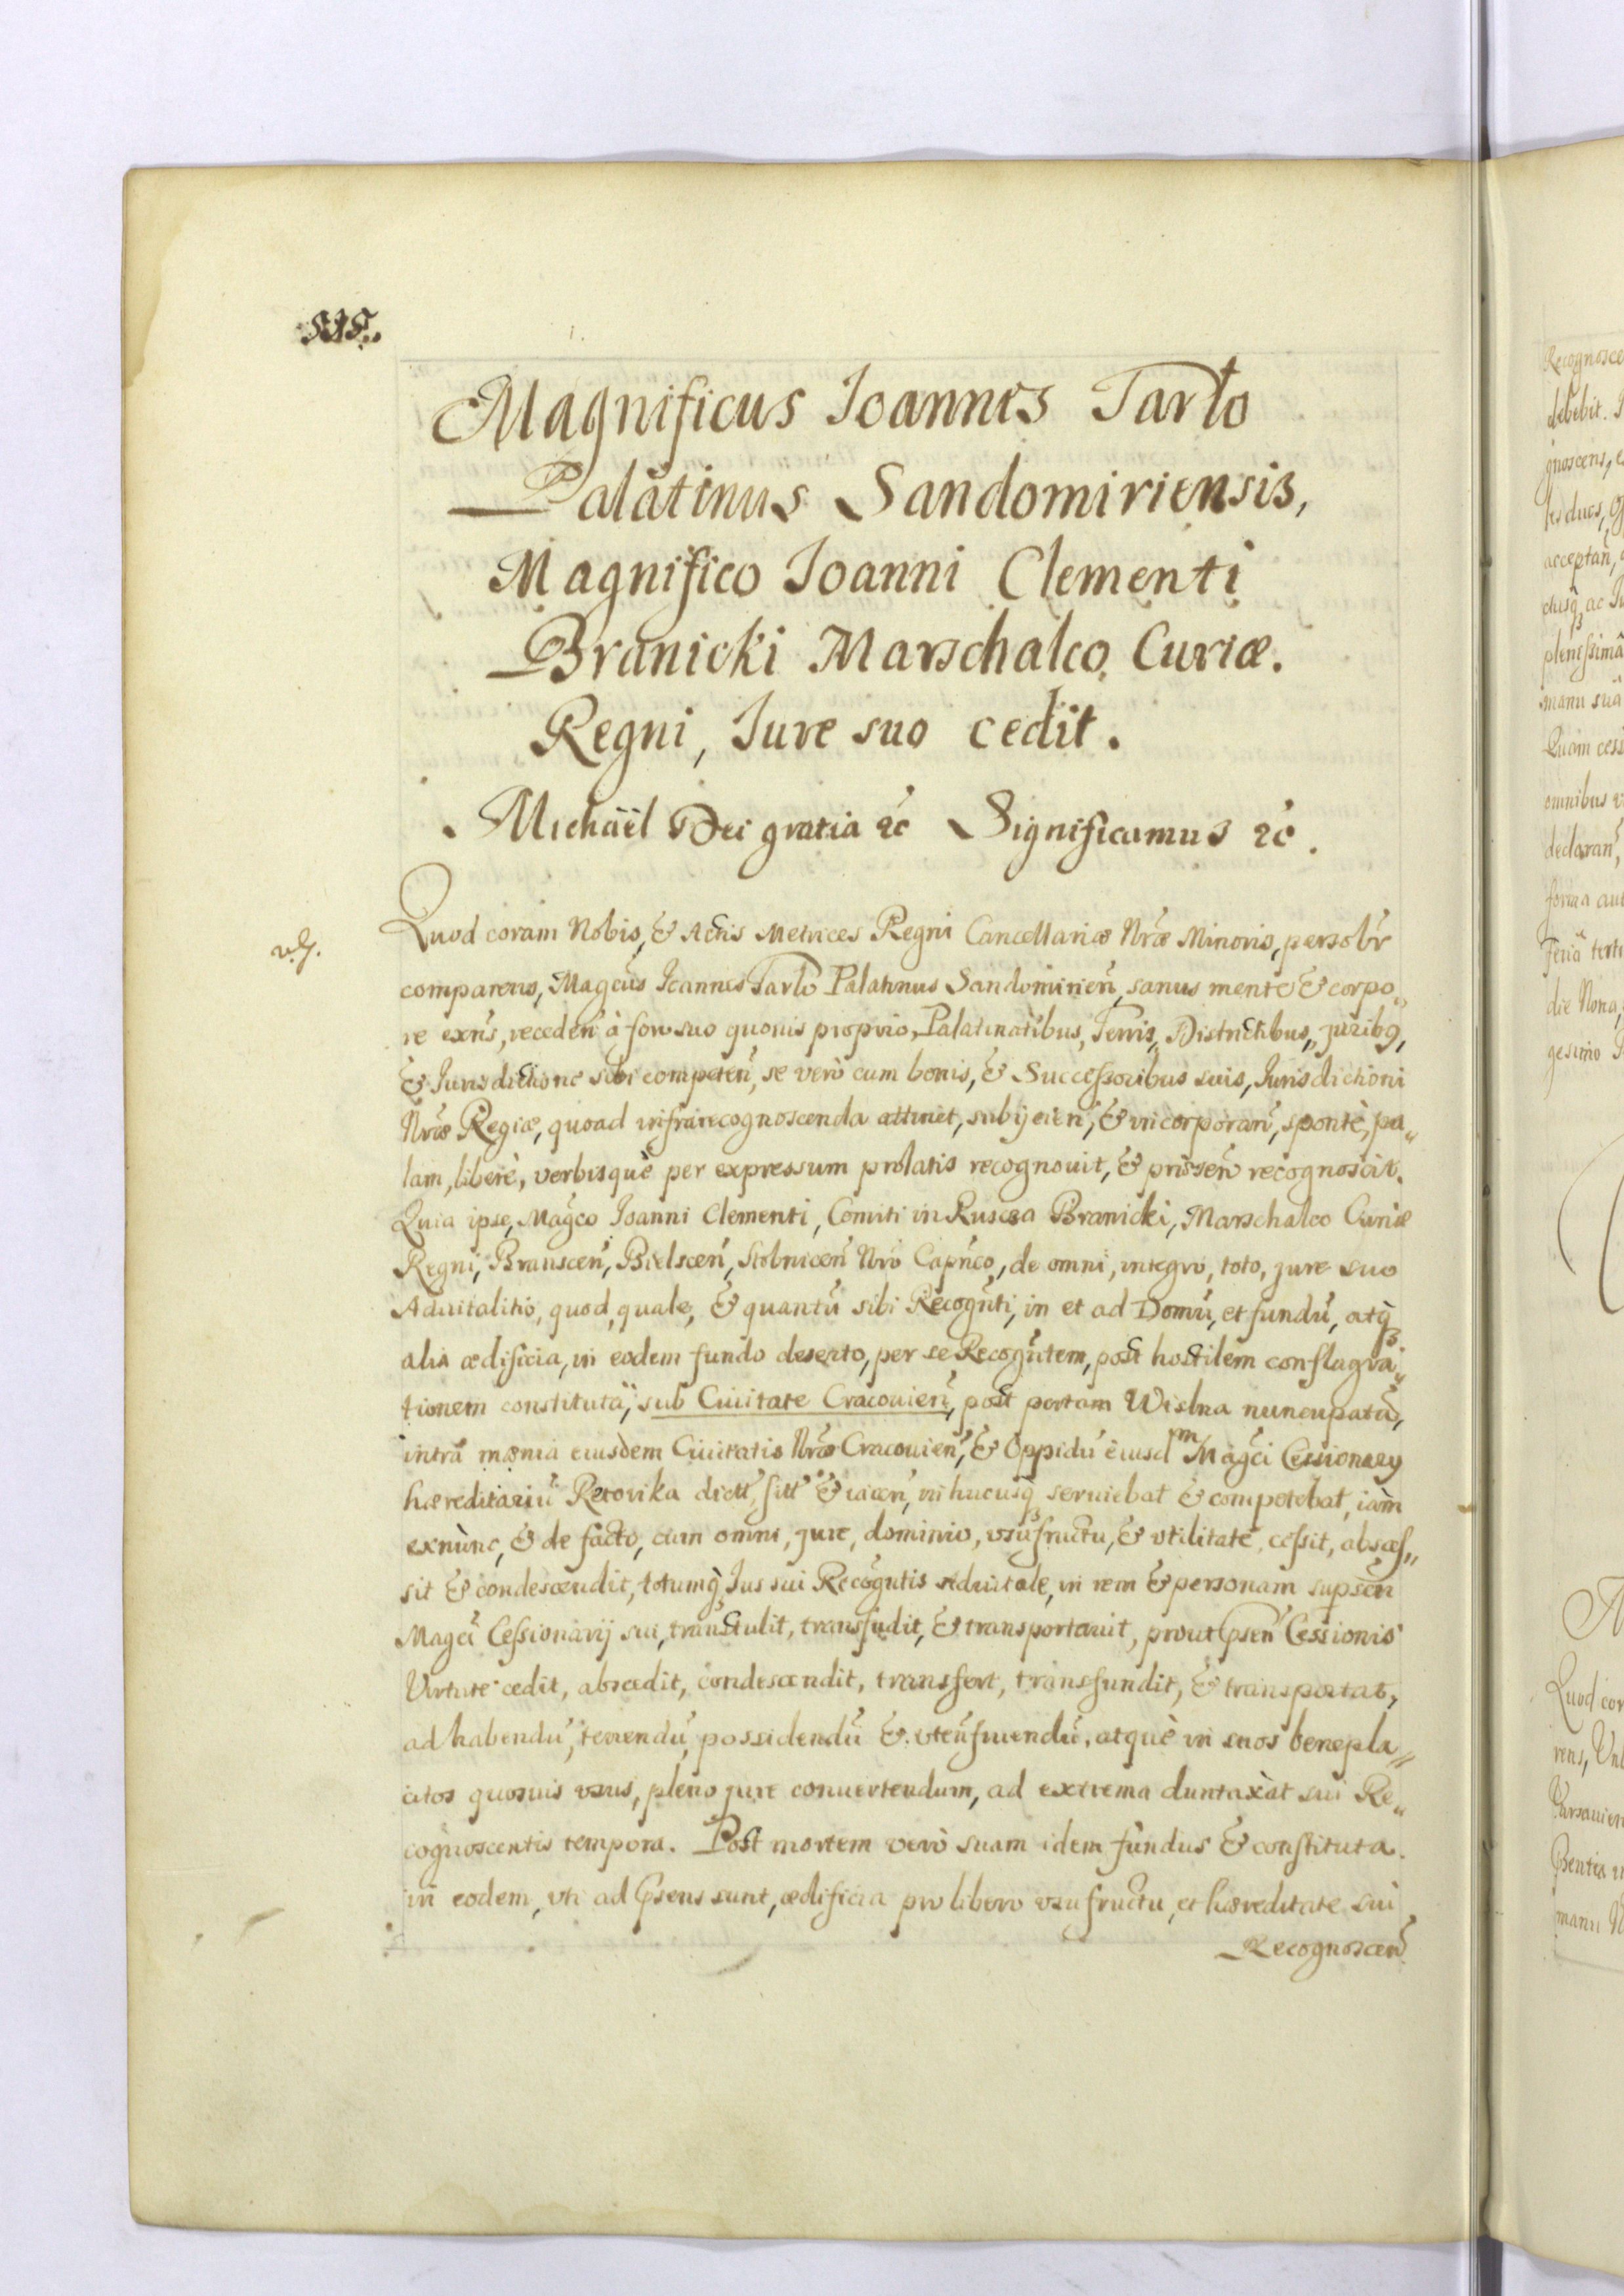 Magnificus Joannes Tarło
Palatinus Sandomiriensis,
Magnifico Joanni Clementi
Branicki Marschalco Curiæ.
Regni, Jure suo cedit.
Michaël Dei gratia &c Significamus &c.
Quod coram Nobis, & Actis Metrices Regni Cancellariæ Nrãe Minoris, persolr̃
comparens, Magcus Joannes Tarło Palatinus Sandomirien̄, sanus mente & corpo„
re exn̄s, receden̄ à foro suo quouis proprio, Palatinatibus, Terris, Districtibus, juribq,
& Jurisdictione sibi competen̄, se verò cum bonis, & Successoribus suis, Jurisdictioni
Nrãe Regiæ, quoad infrarecognoscenda attinet, subijcien̄, & incorporan̄, spontè, pa„
lam, liberè, verbisquè per expressum prolatis recognouit, & præsen̄ recognoscit.
Quia ipse, Magco Joanni Clementi, Comiti in Ruscza Branicki, Marschalco Curiæ
Regni, Branscen̄, Bielscen̄, Stobnicen̄ Nro Capn̄co, de omni, integro, toto, jure suo
Aduitalitio, quod, quale, & quantū sibi Recognti, in et ad Domū, et fundū, atq̃
alia ædificia, in eodem fundo deserto, per se Recogntem, post hostilem conflagra„
tionem constituta, sub Ciuitate Cracouien̄, post portam Wislna nuncupatā,
intra mœnia eiusdem Ciuitatis Nrãe Cracouien̄, & Oppidū eiusdm Magci Cessionarij
hæreditariū Retorika dictt, sitt & iacen̄, in hucusq̃ seruiebat & competebat, iàm
exnùnc, & de facto, cum omni, jure, dominio, vsufructu, & vtilitate cessit, absces„
sit & condescendit, totumq̃ Jus sui Recogntis aduitale, in rem & personam supscn̄
Magci Cessionarij sui, transtulit, transfudit, & transportauit, prout psen̄ Cessionis
Virtute cedit, abscedit, condescendit, transfert, transfundit, & transportat,
ad habendū, tenendū, possidendū & vteñfruendū, atquè in suos benepla„
citos quosuis vsus, pleno jure conuertendum, ad extrema duntaxàt sui Re„
cognoscentis tempora. Post mortem verò suam idem fundus & constituta
in eodem, vti ad psens sunt, ædificia pro libero vsufructu, et hæreditate sui
Recognoscen̄